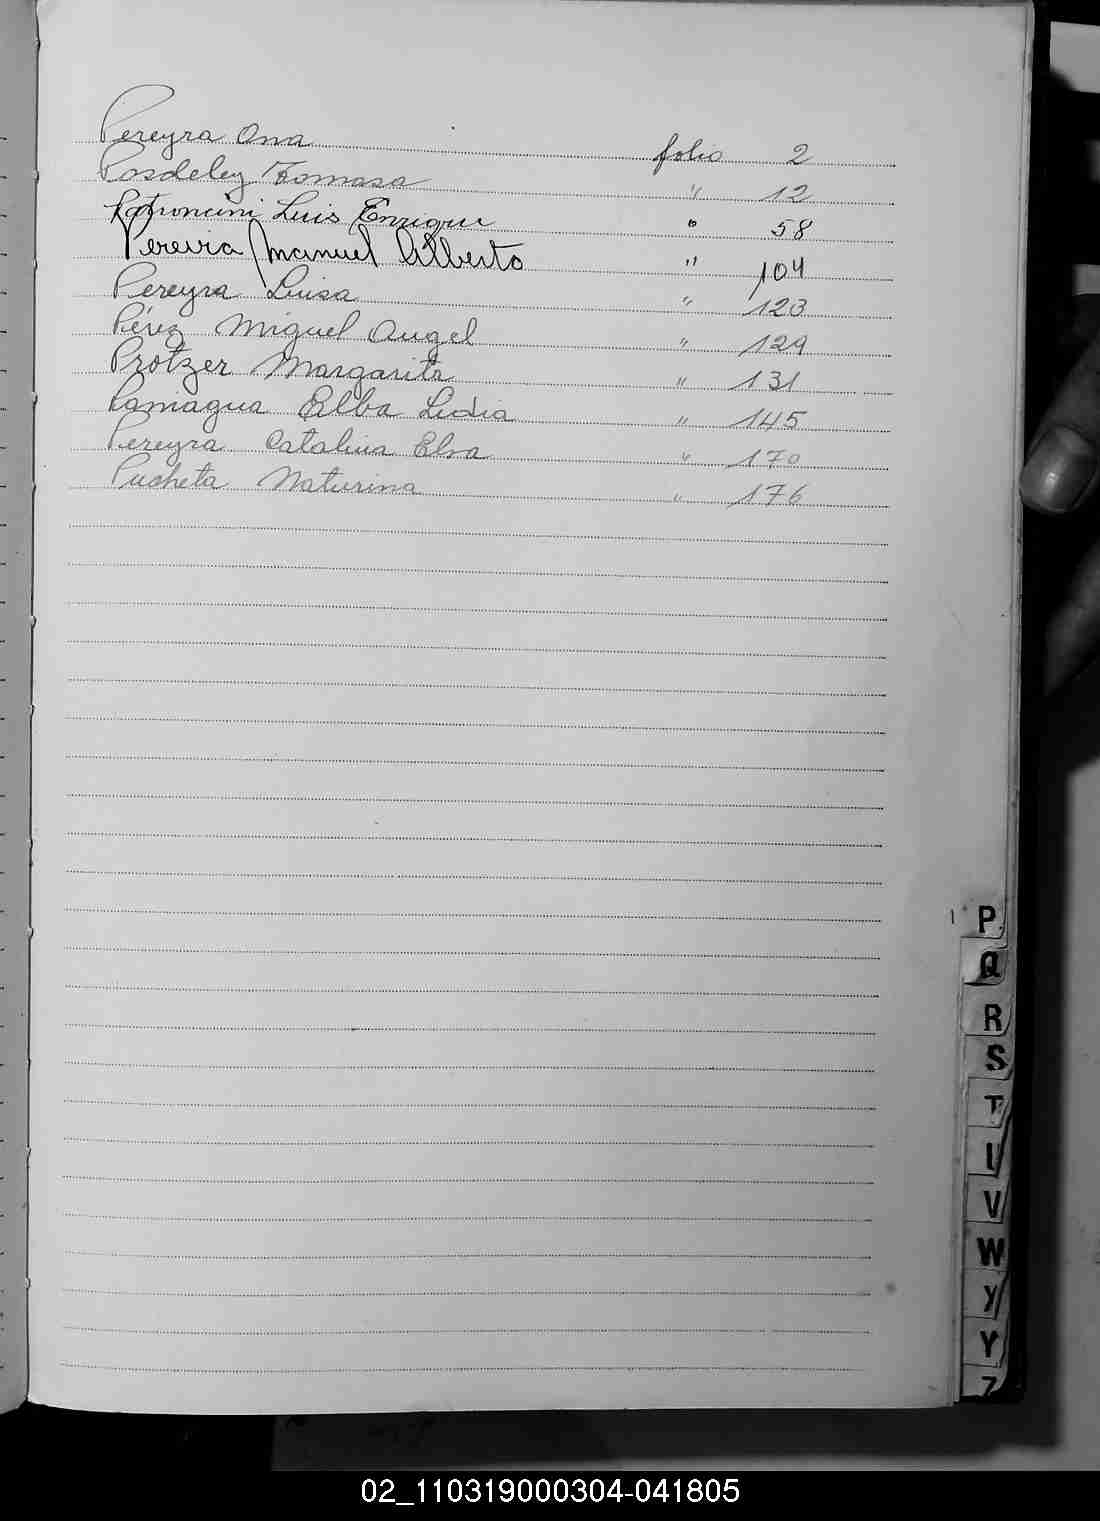 Pereyra Ana folio 2
Posdeley Tomasa " 12
Patroncini Luis Enrique " 58
Pereira Manuel Alberto " 104
Pereyra Luisa " 123
Pérez Miguel Angel " 129
Protzer Margarita " 131
Paniagua Elba Lidia " 145
Pereyra Catalina Elsa " 170
Pucheta Naturina " 176
P
Q
R
S
T
V
W
Y
Z
02_110319000304-041805